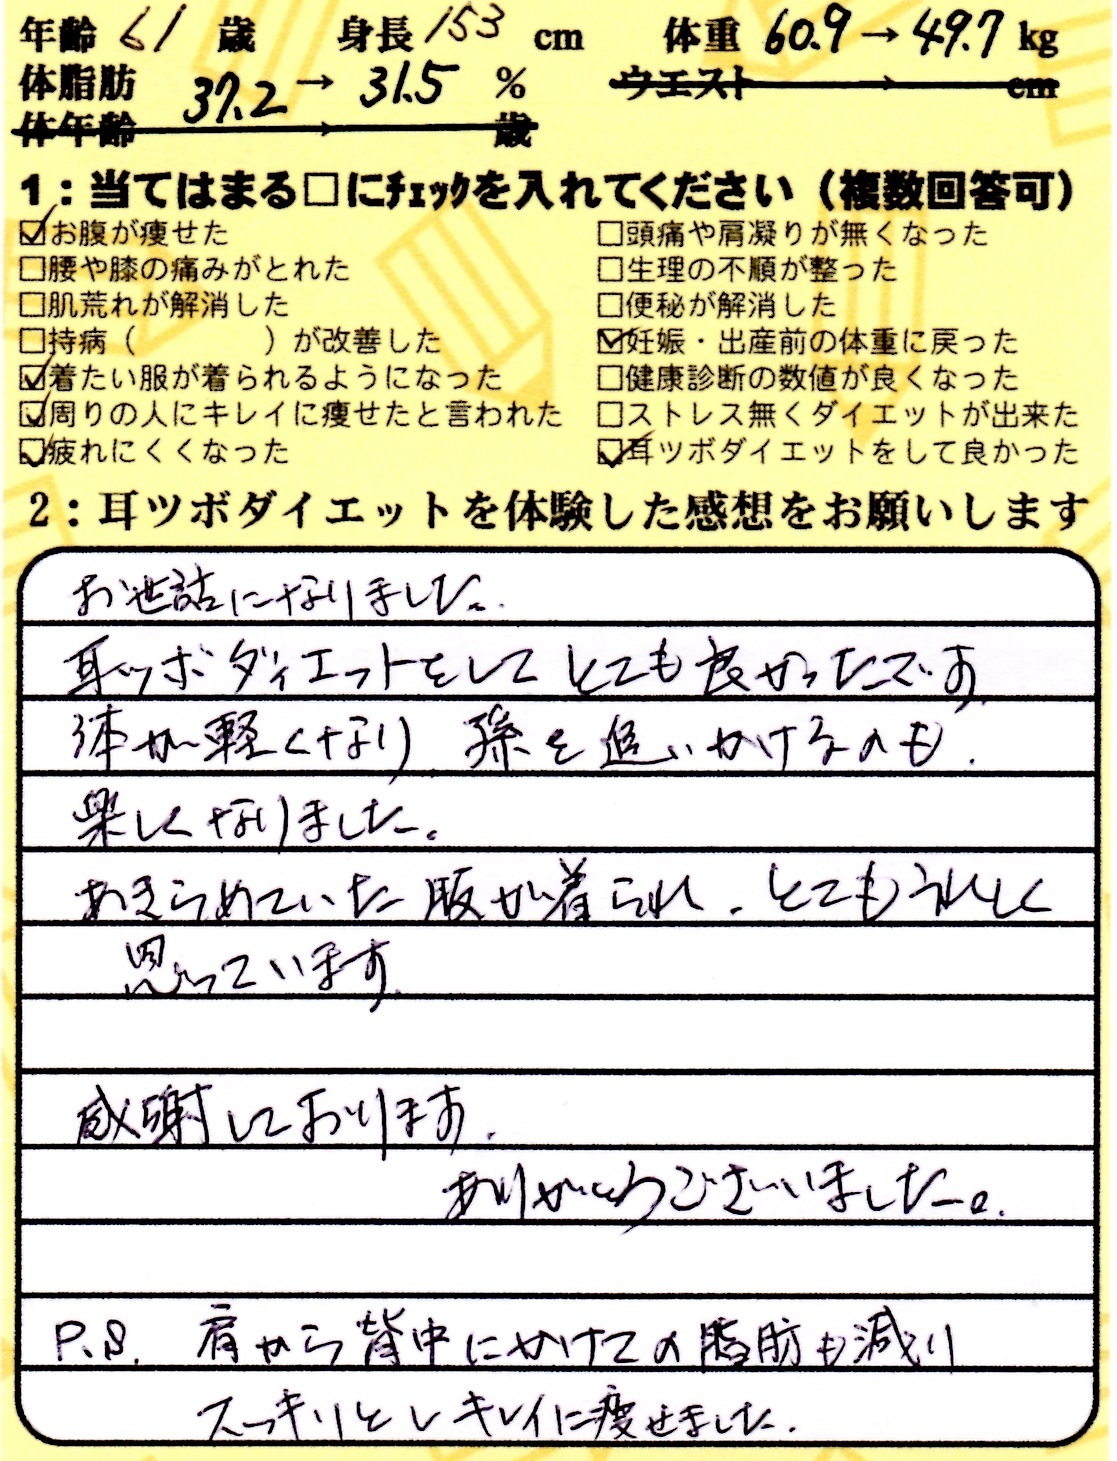 年齢 61 歳 身長 153 cm 体重 60.9 → 49.7 kg
体脂肪 37.2 → 31.5 % ウエスト → cm
体年齢 → 歳
1：当てはまる□にﾁｪｯｸを入れてください（複数回答可）
☑お腹が痩せた □頭痛や肩凝りが無くなった
□腰や膝の痛みがとれた □生理の不順が整った
□肌荒れが解消した □便秘が解消した
□持病（ ）が改善した ☑妊娠・出産前の体重に戻った
☑着たい服が着られるようになった □健康診断の数値が良くなった
☑周りの人にキレイに痩せたと言われた □ストレス無くダイエットが出来た
☑疲れにくくなった ☑耳ツボダイエットをして良かった
2：耳ツボダイエットを体験した感想をお願いします
お世話になりました。
耳ツボダイエットをして とても良かったです
体が軽くなり 孫を追いかけるのも
楽しくなりました。
あきらめていた服が着られ、とてもうれしく
思っています。
感謝しております。
ありがとうございました。
P.S. 肩から背中にかけての脂肪も減り
スッキリとしキレイに痩せました。